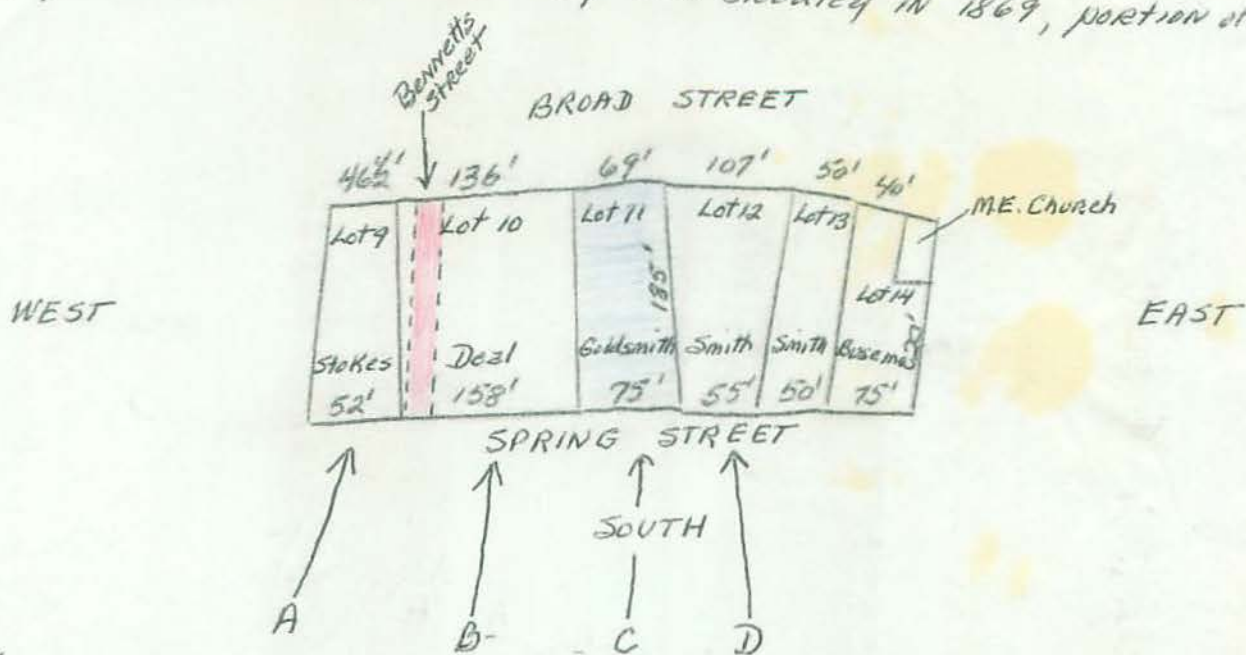 IN 1869, PORTION OF
Bennetts
Street
BROAD STREET
136' 69' 107' 50' 40'
M.E. Church
Lot 9 Lot 10 Lot 11 Lot 12 Lot 13
185'
Lot 14
WEST EAST
Stokes Deal Goldsmith Smith Smith
52' 158' 75' 55' 50' 75'
SPRING STREET
SOUTH
A B- C D